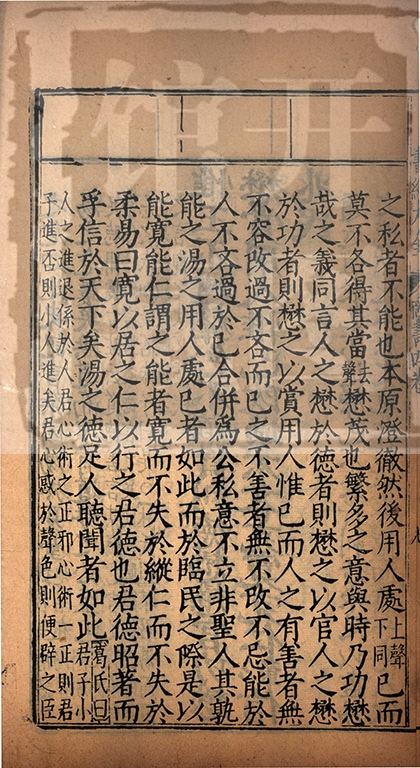 之私者不能也本原澄徹然後用人處上聲下同己而
莫不各得其當去聲懋茂也繁多之意與時乃功懋
哉之義同言人之懋於德者則懋之以官人之懋
於功者則懋之以賞用人惟己而人之有善者無
不容改過不吝而己之不善者無不改不忌能於
人不吝過於己合併爲公私意不立非聖人其孰
能之湯之用人處己者如此而於臨民之際是以
能寬能仁謂之能者寬而不失於縱仁而不失於
柔易曰寬以居之仁以行之君德也君德昭著而
孚信於天下矣湯之德足人聽聞者如此葛氏曰君子小
人之進退係於人君心術之正邪心術一正則君
子進否則小人進矣君心惑於聲色則便辟之臣